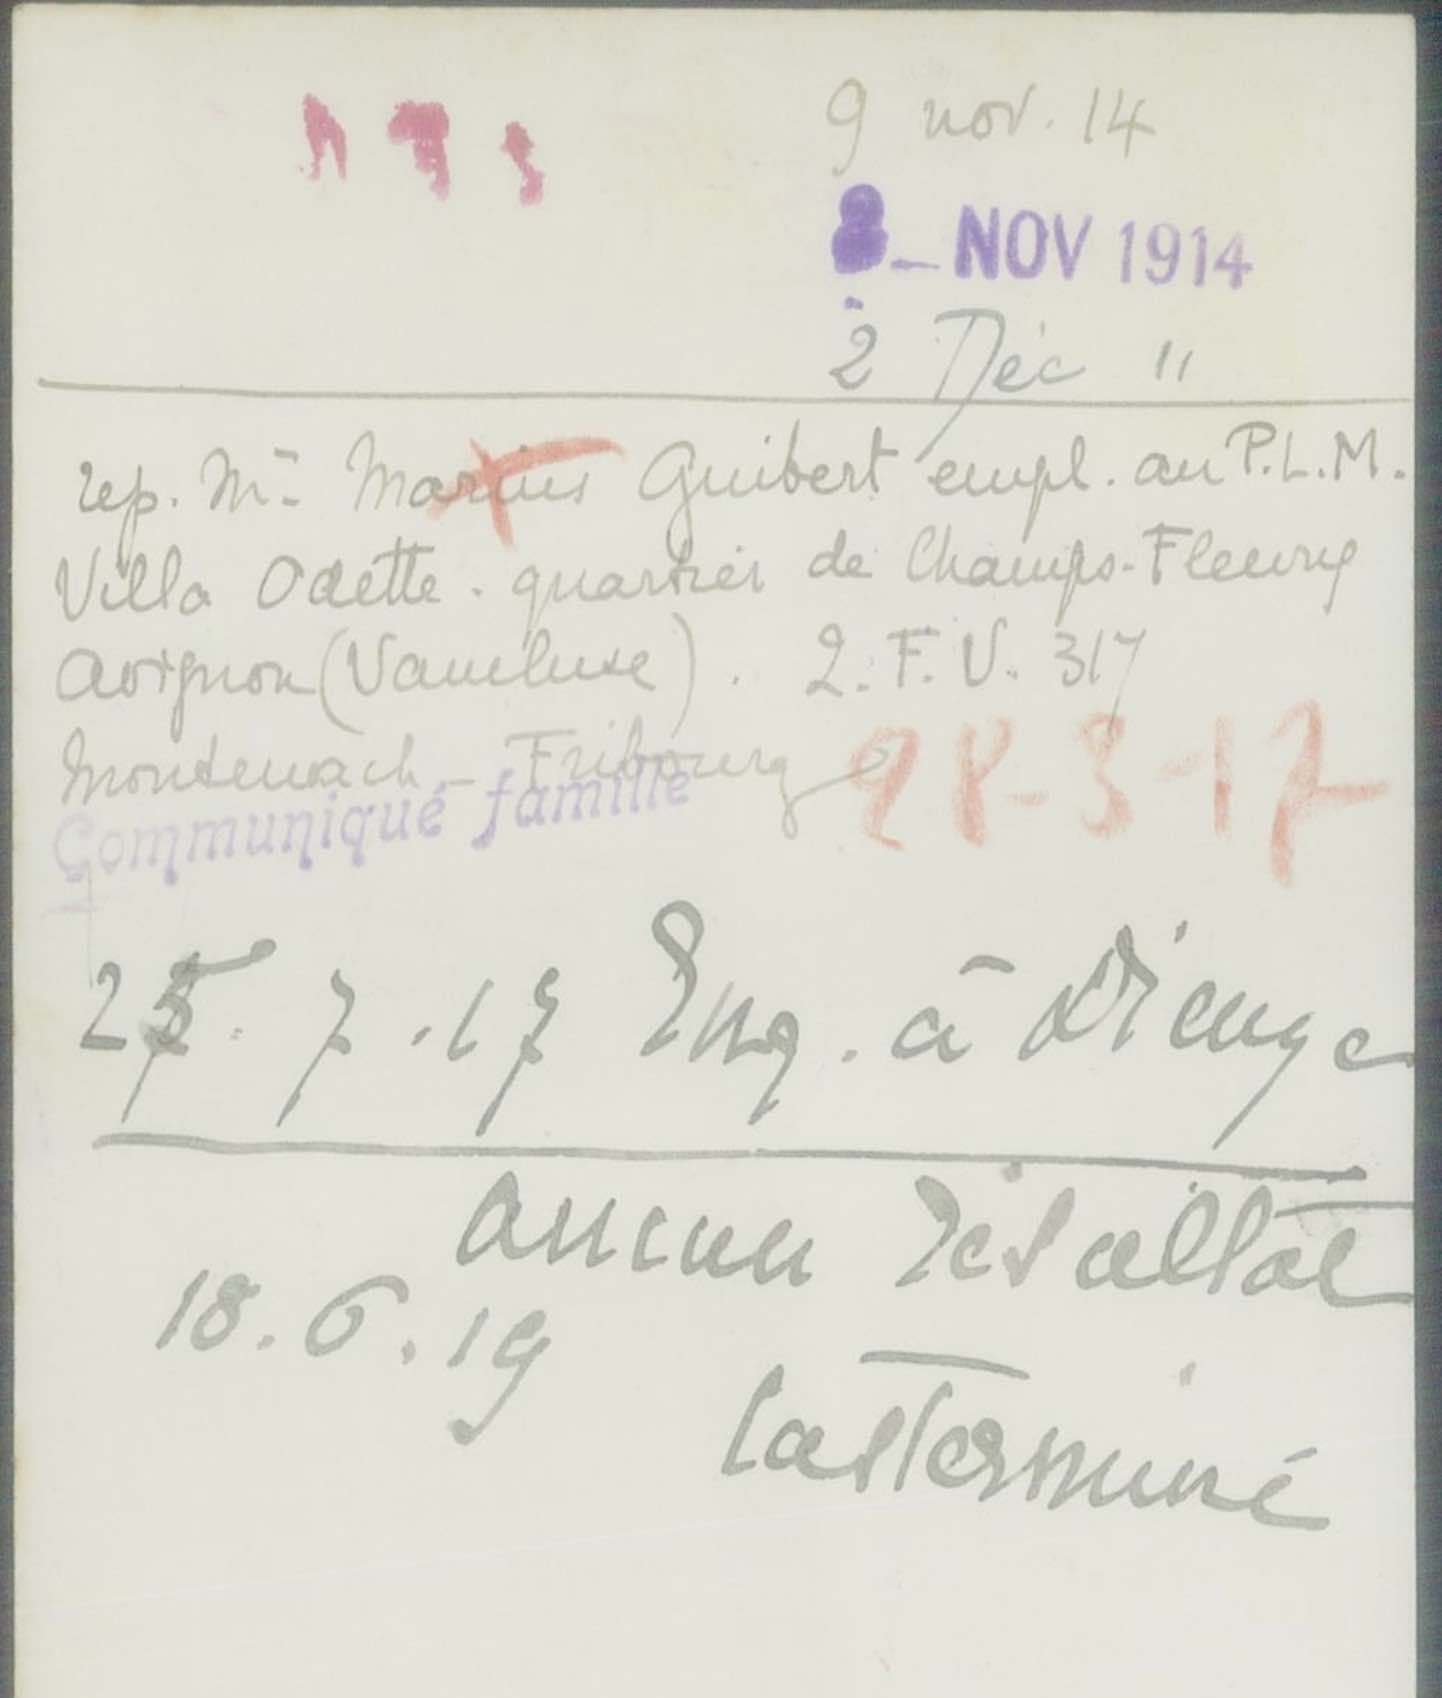 9 nov. 14
8 - NOV 1914
2 Déc "
rep. Mr Marius Guibert empl. au P.L.M.
Villa Odette. quartier de Champs-Fleury
Avignon (Vaucluse). 2. F. V. 317
Montenach - Fribourg
28-3-17
Communiqué famille
25. 7. 17 Enq. à Dieuze
aucun résultat
18. 6. 19
Cas terminé